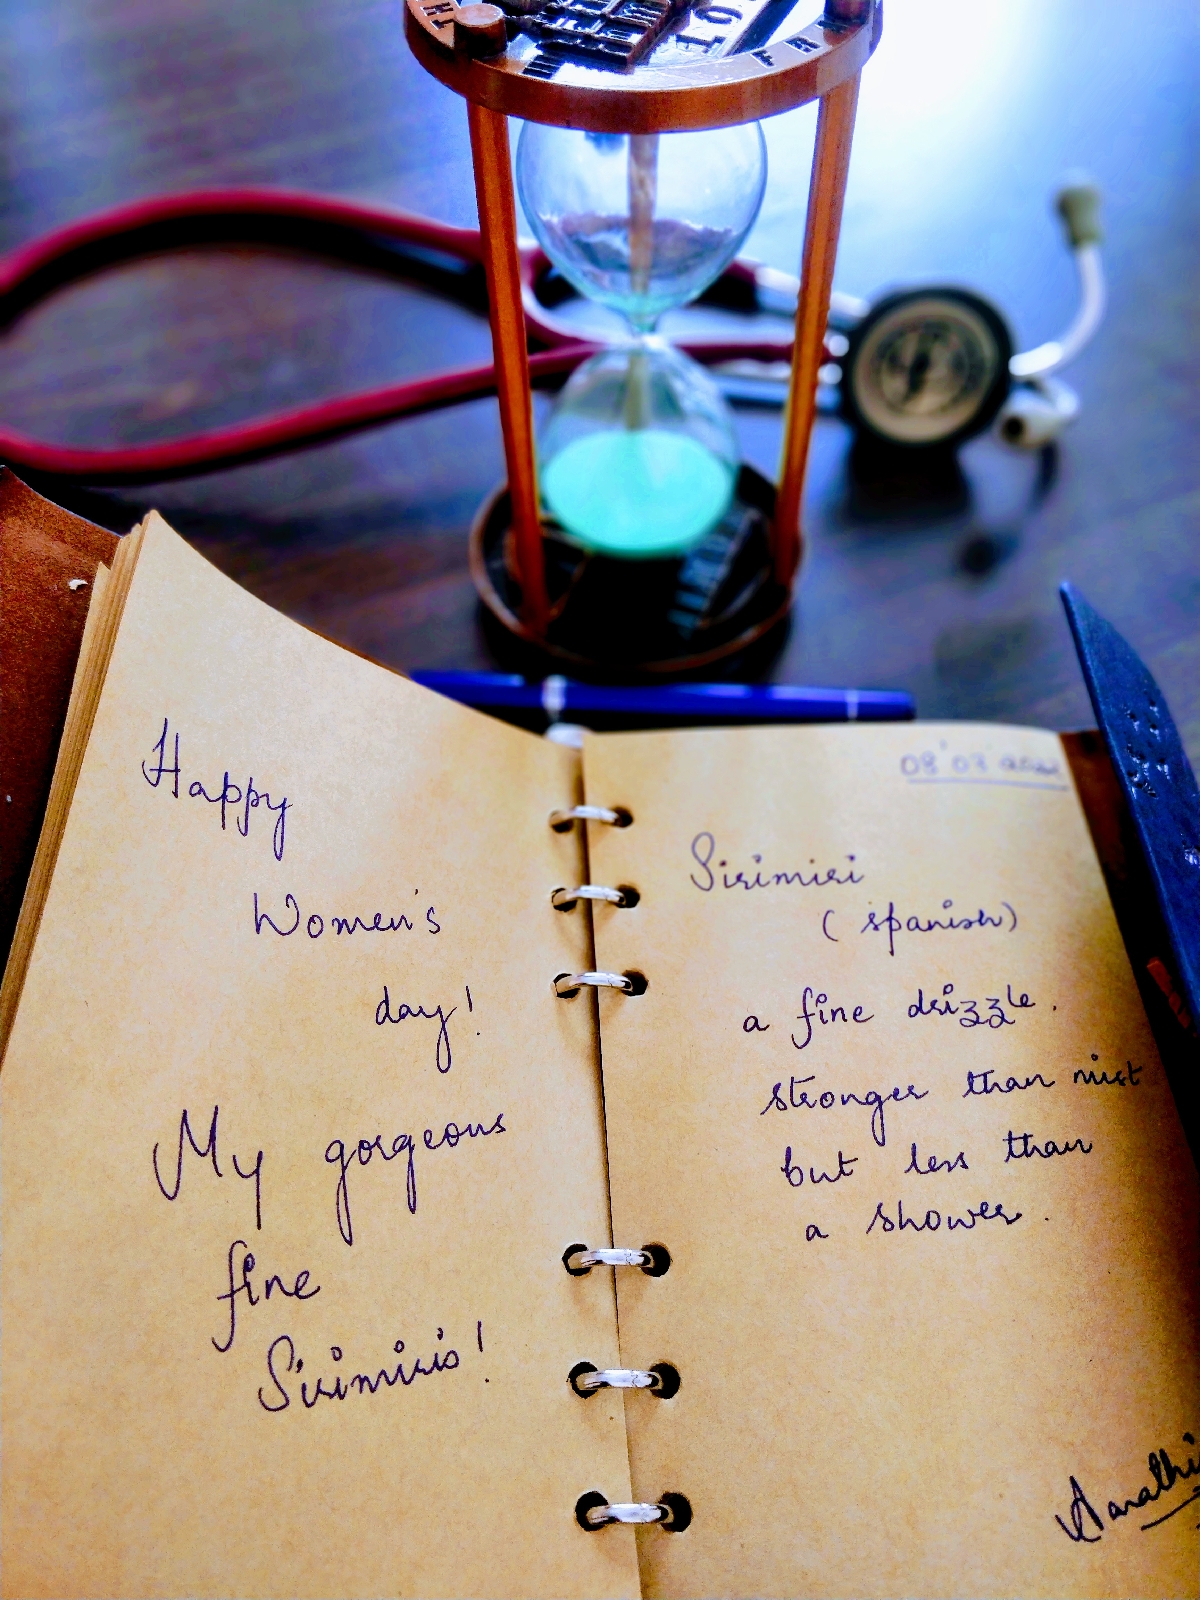 Happy
Women's
day!
My gorgeous
fine
Sirimiris!
08'03 2022
Sirimiri
(spanish)
a fine drizzle.
stronger than mist
but less than
a shower.
Aarathi